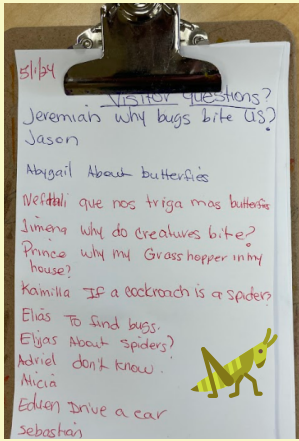 5/1/24
Visitor questions?
Jeremiah why bugs bite us?
Jason
Abygail About butterflies
Neftali que nos triga mas butterfies
Jimena why do creatures bite?
Prince why my Grasshopper in my
house?
Kamilla If a cockroach is a spider?
Elias To find bugs.
Elijas About spiders?
Adriel don't know.
Alicia
Edwen Drive a car
Sebastian